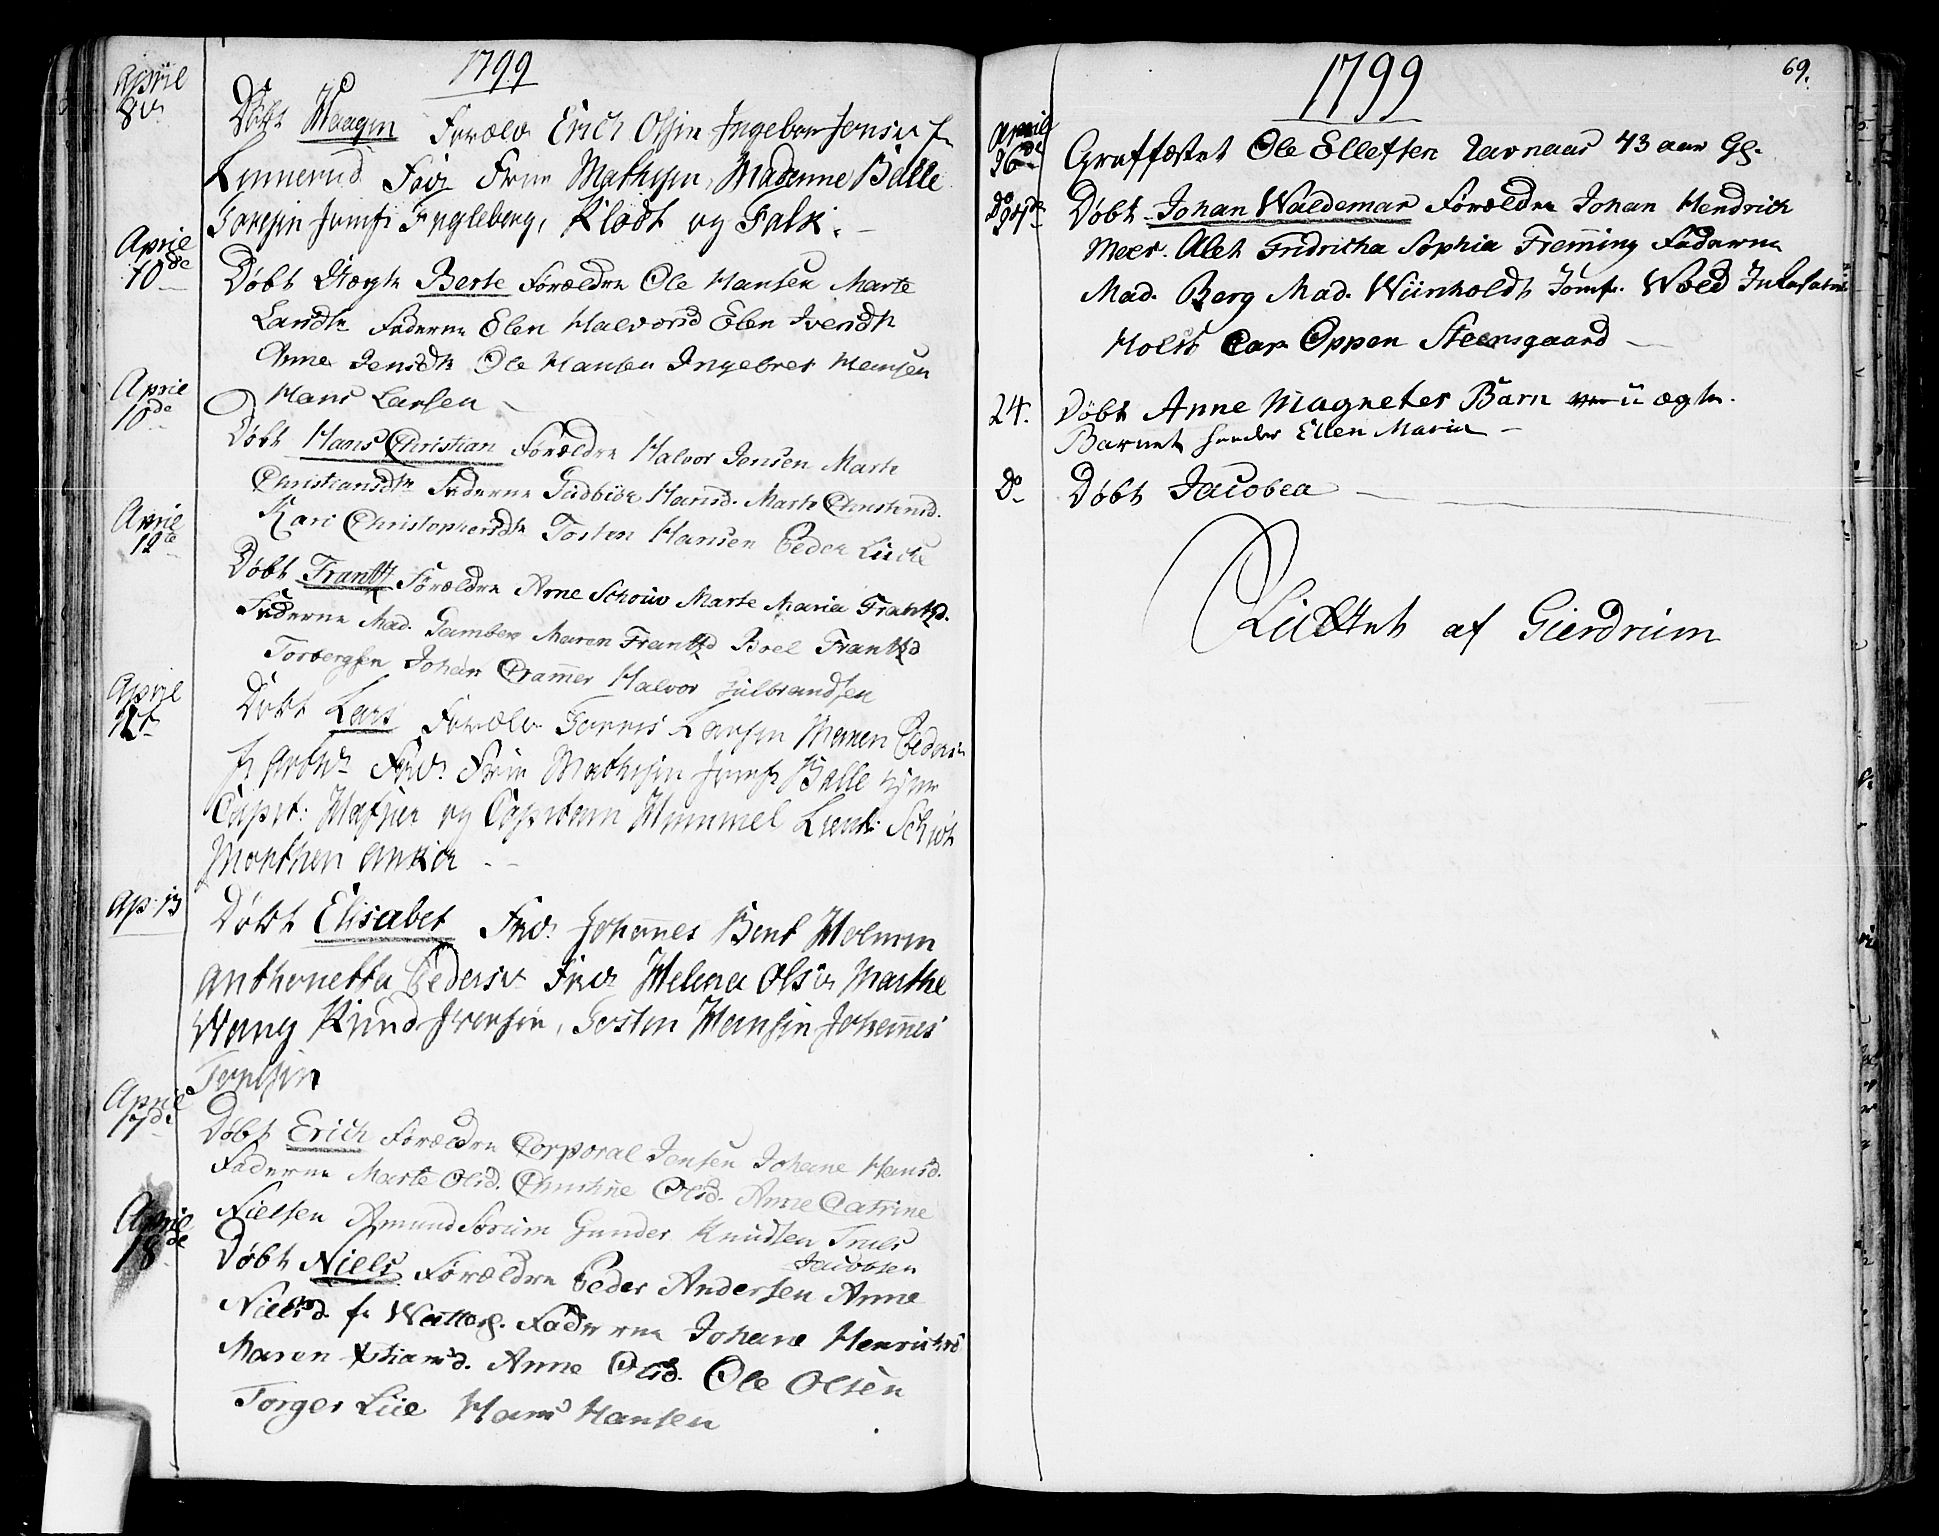 1799
Aprill 8de
Døbt Maagen Forældr Erich Olsen Ingebor Jensdr fr
Linnerud Fadr Frue Mathisen, Madenne Balle
Torresen Jomfr Engleberg, Klodt og Falk. –
Aprile 10de
Døbt Uægte Berte Forældre Ole Hansen Marte
Larsdtr Fadderne Elen Halvorsd Elen Iversdtr
Anne Jensdtr Ole Hansen Ingebret Hansen
Hans Larsen –
Aprile 10de
Døbt Hans Christian Forældre Halvor Jensen Marte
Christiansdtr Fadderne Gudbiør Hansd. Marte Christensd.
Kari Christophersdtr Tosten Hansen Peder Lische
Aprile 12te
Døbt Frantz Forældre Arne Schouv Marte Maria Frantzd.
Fadderne Mad. Gamberg Maren Frantzd Boel Frantzd
Torbergsen Johan Crammer Halvor Gulbrandsen
Aprile
Døbt Lars Forældr Torres Larsen Maren Pedersdr
Fadr Frue Mathisen Jomfr Balle
Capit: Hafner og Capitain Hummel Lieut: Schiøt
Morthen Anker – –
Ap: 13
Døbt Elisabet Fadr Johannes Bent Holmen
Anthonetta Pedersdr Fadr Helena Olsdr Marthe
Wang Knud Iversen, Tosten Hansen Johannes
Torresen
Aprile 17de
Døbt Erich Forældre Corporal Jensen Johane Hansd.
Fadderne Marte Olsd. Christine Olsd. Anne Catrine
Nielsen Amund Sørum Gunder Knudsen Truls
Jacobsen
Aprile 18de
Døbt Niels Forældre Peder Andersen Anne
Nielsd. fr Fadderne Johane Henrichsd
Maren Xtiansd. Anne Olsd. Ole Olsen
Torger Lüe Hans Hansen
1799
69.
Aprile
Graffæstet Ole Ellefsen Ravnaas 43 aar Gl.
Do
Døbt Johan Waldemar Forældre Johan Hendrich
Meer. Alet Fridricha Sophia Fremming Fadderne
Mad. Berg Mad. Wünholdt Jomfr. Wold
Holst Car Oppen Steensgaard –
24.
Døbt Anne Magnetes Barn uægte.
Barnet heeder Ellen Maria –
Do
Døbt Jacobea –
Sluttet af Gierdrum